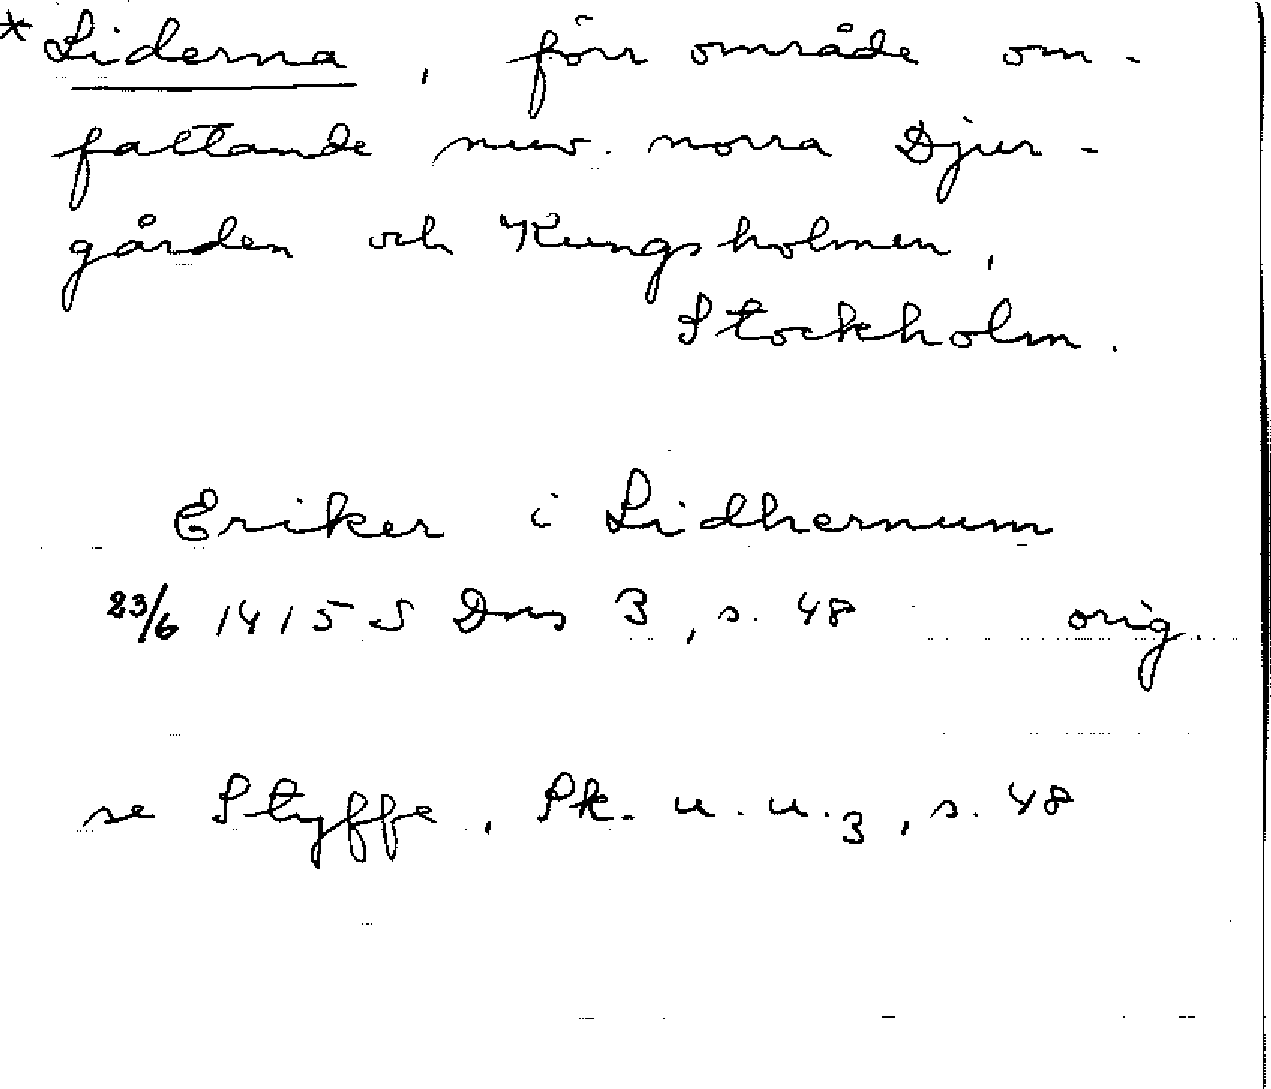 *Liderna, förr område om-
fattande nuv. norra Djur-
gården och Kungsholmen,
Stockholm.
Eriker i Lidhernum
23/6 1415 S Dns 3, s. 48 orig.
se Styffe, Sk. u. u. 3, s. 48